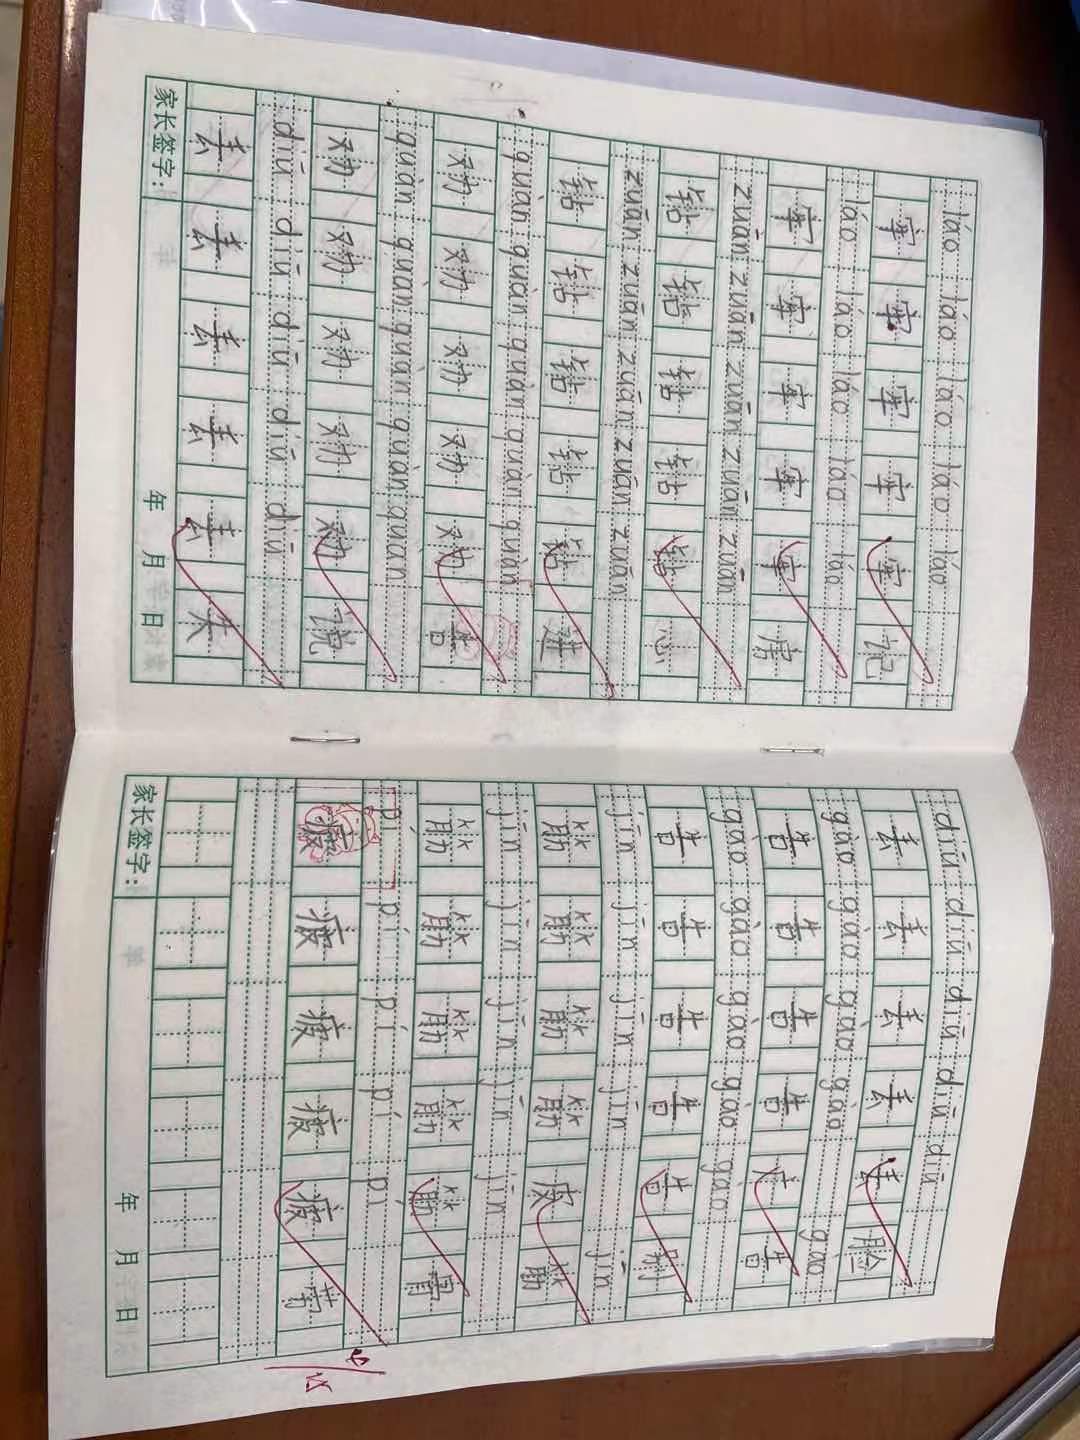 láo láo láo láo láo
牢 牢 牢 牢 牢 记
láo láo láo láo láo
牢 牢 牢 牢 牢 房
zuān zuān zuān zuān zuān
钻 钻 钻 钻 钻 心
zuān zuān zuān zuān zuān
钻 钻 钻 钻 钻 进
quàn quàn quàn quàn quàn
劝 劝 劝 劝 劝 告
quàn quàn quàn quàn quàn
劝 劝 劝 劝 劝 说
diū diū diū diū diū
丢 丢 丢 丢 丢 失
家长签字: 年 月 日
diū diū diū diū diū
丢 丢 丢 丢 丢 脸
gào gào gào gào gào
告 告 告 告 广 告
gào gào gào gào gào
告 告 告 告 告 别
jīn jīn jīn jīn jīn
筋 筋 筋 筋 皮 筋
jīn jīn jīn jīn jīn
筋 筋 筋 筋 筋 骨
pí pí pí pí pí
疲 疲 疲 疲 疲 劳
家长签字: 年 月 日